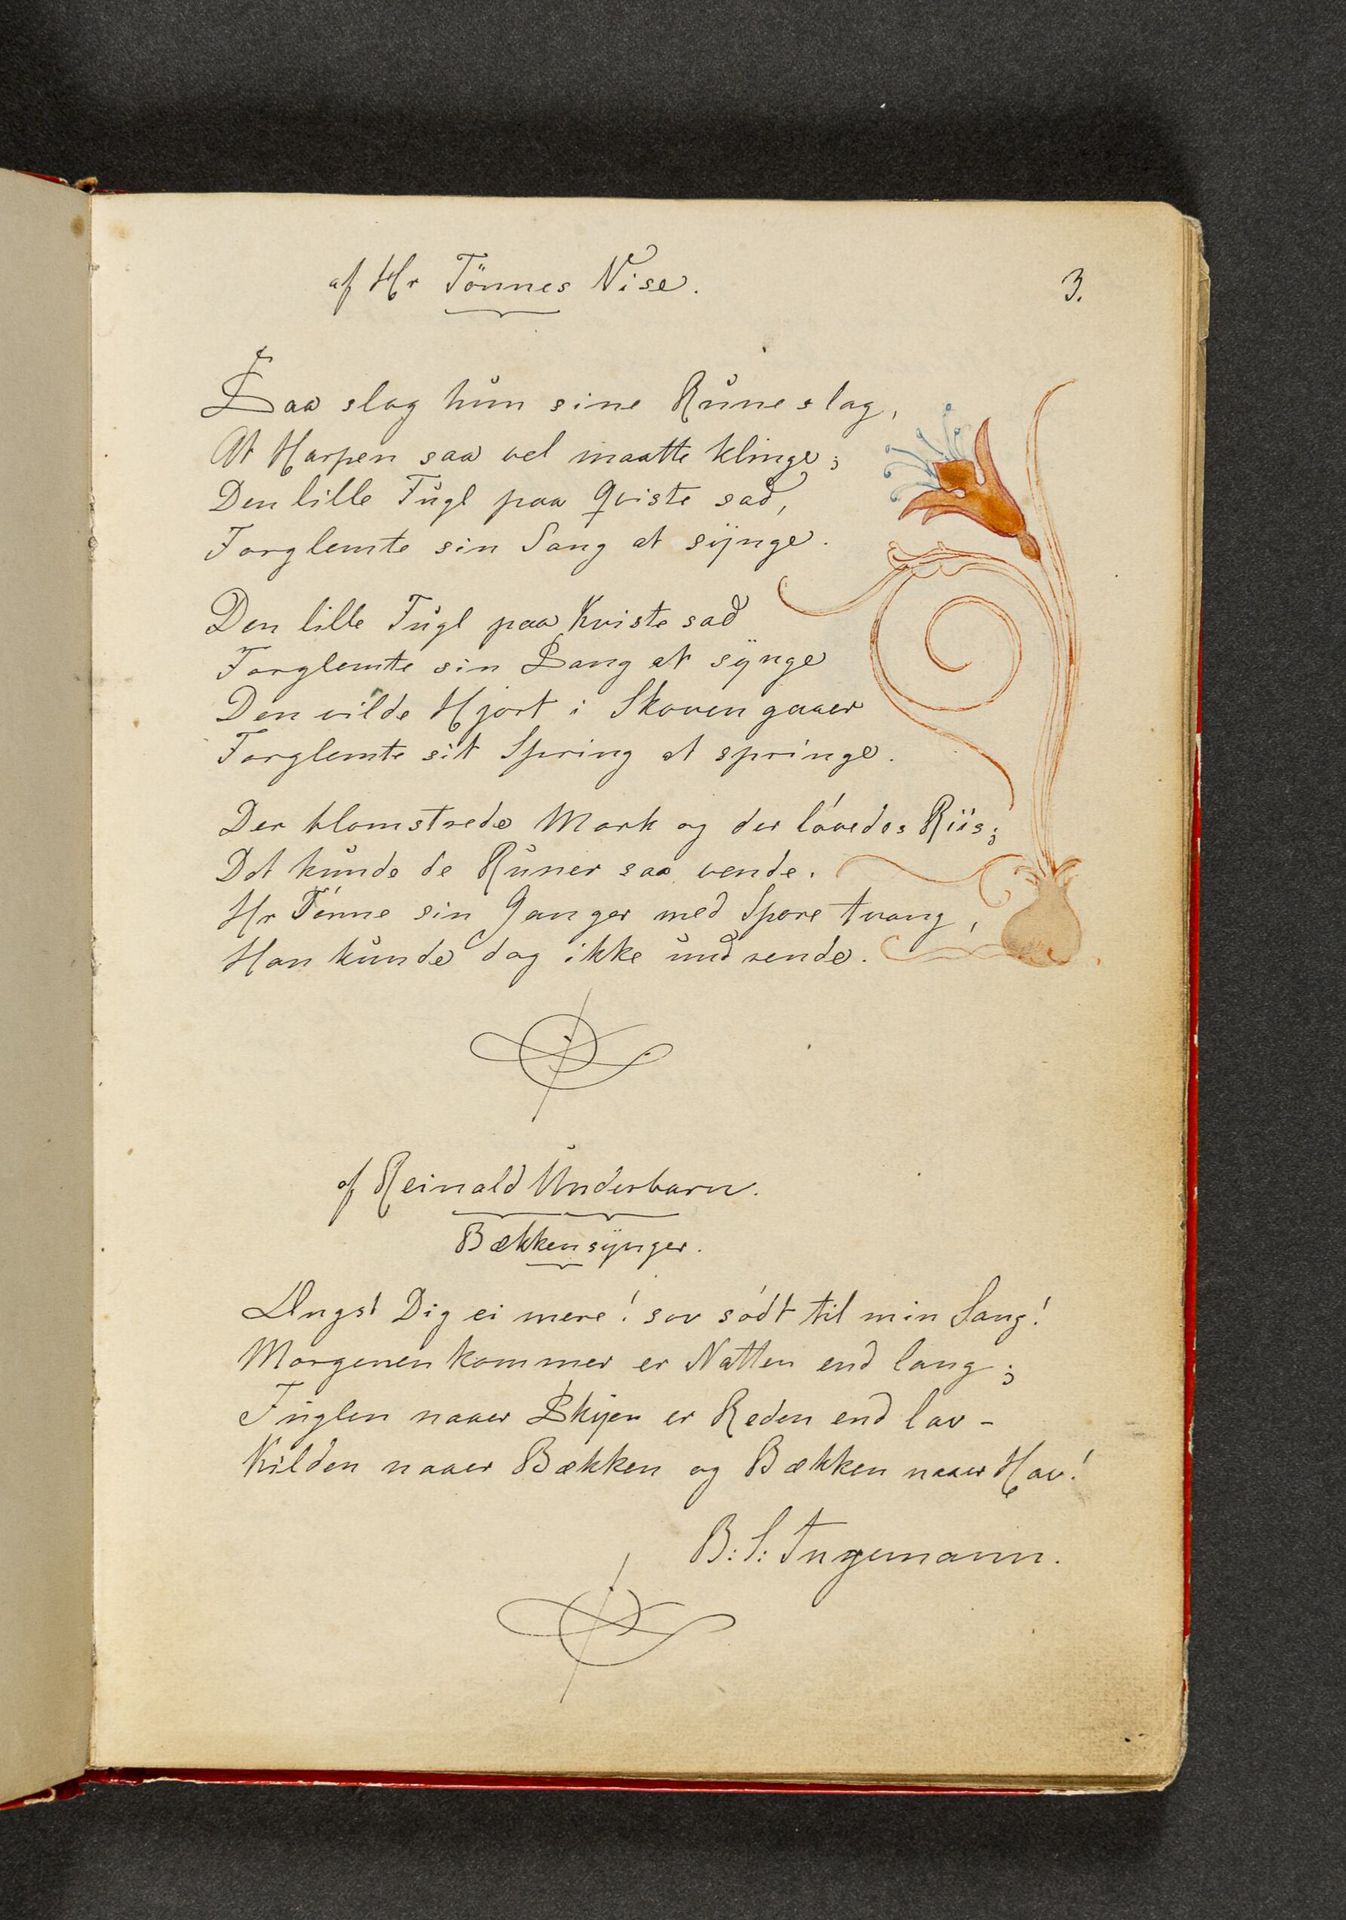 af Hr Tönnes Vise.
3.
Saa slog hun sine Runeslag,
At Harpen saa vel maatte klinge;
Den lille Fugl paa Qviste sad,
Forglemte sin Sang at synge.
Den lille Fugl paa Kviste sad
Forglemte sin Sang at synge
Den vilde Hjort i Skoven gaaer
Forglemte sit Spring at springe.
Der blomstrede Mark og der lövedes Riis;
Det kunde de Runer saa vende.
Hr Tönne sin Ganger med Spore tvang,
Han kunde dog ikke undrende.
af Reinald Underbarn.
Bækken synger.
Ængst Dig ei mere! sov södt til min Sang!
Morgenen kommer er Natten end lang;
Fuglen naaer Skyen er Reden end lav -
Kilden naaer Bækken og Bækken naaer Hav!
B: S: Ingemann.